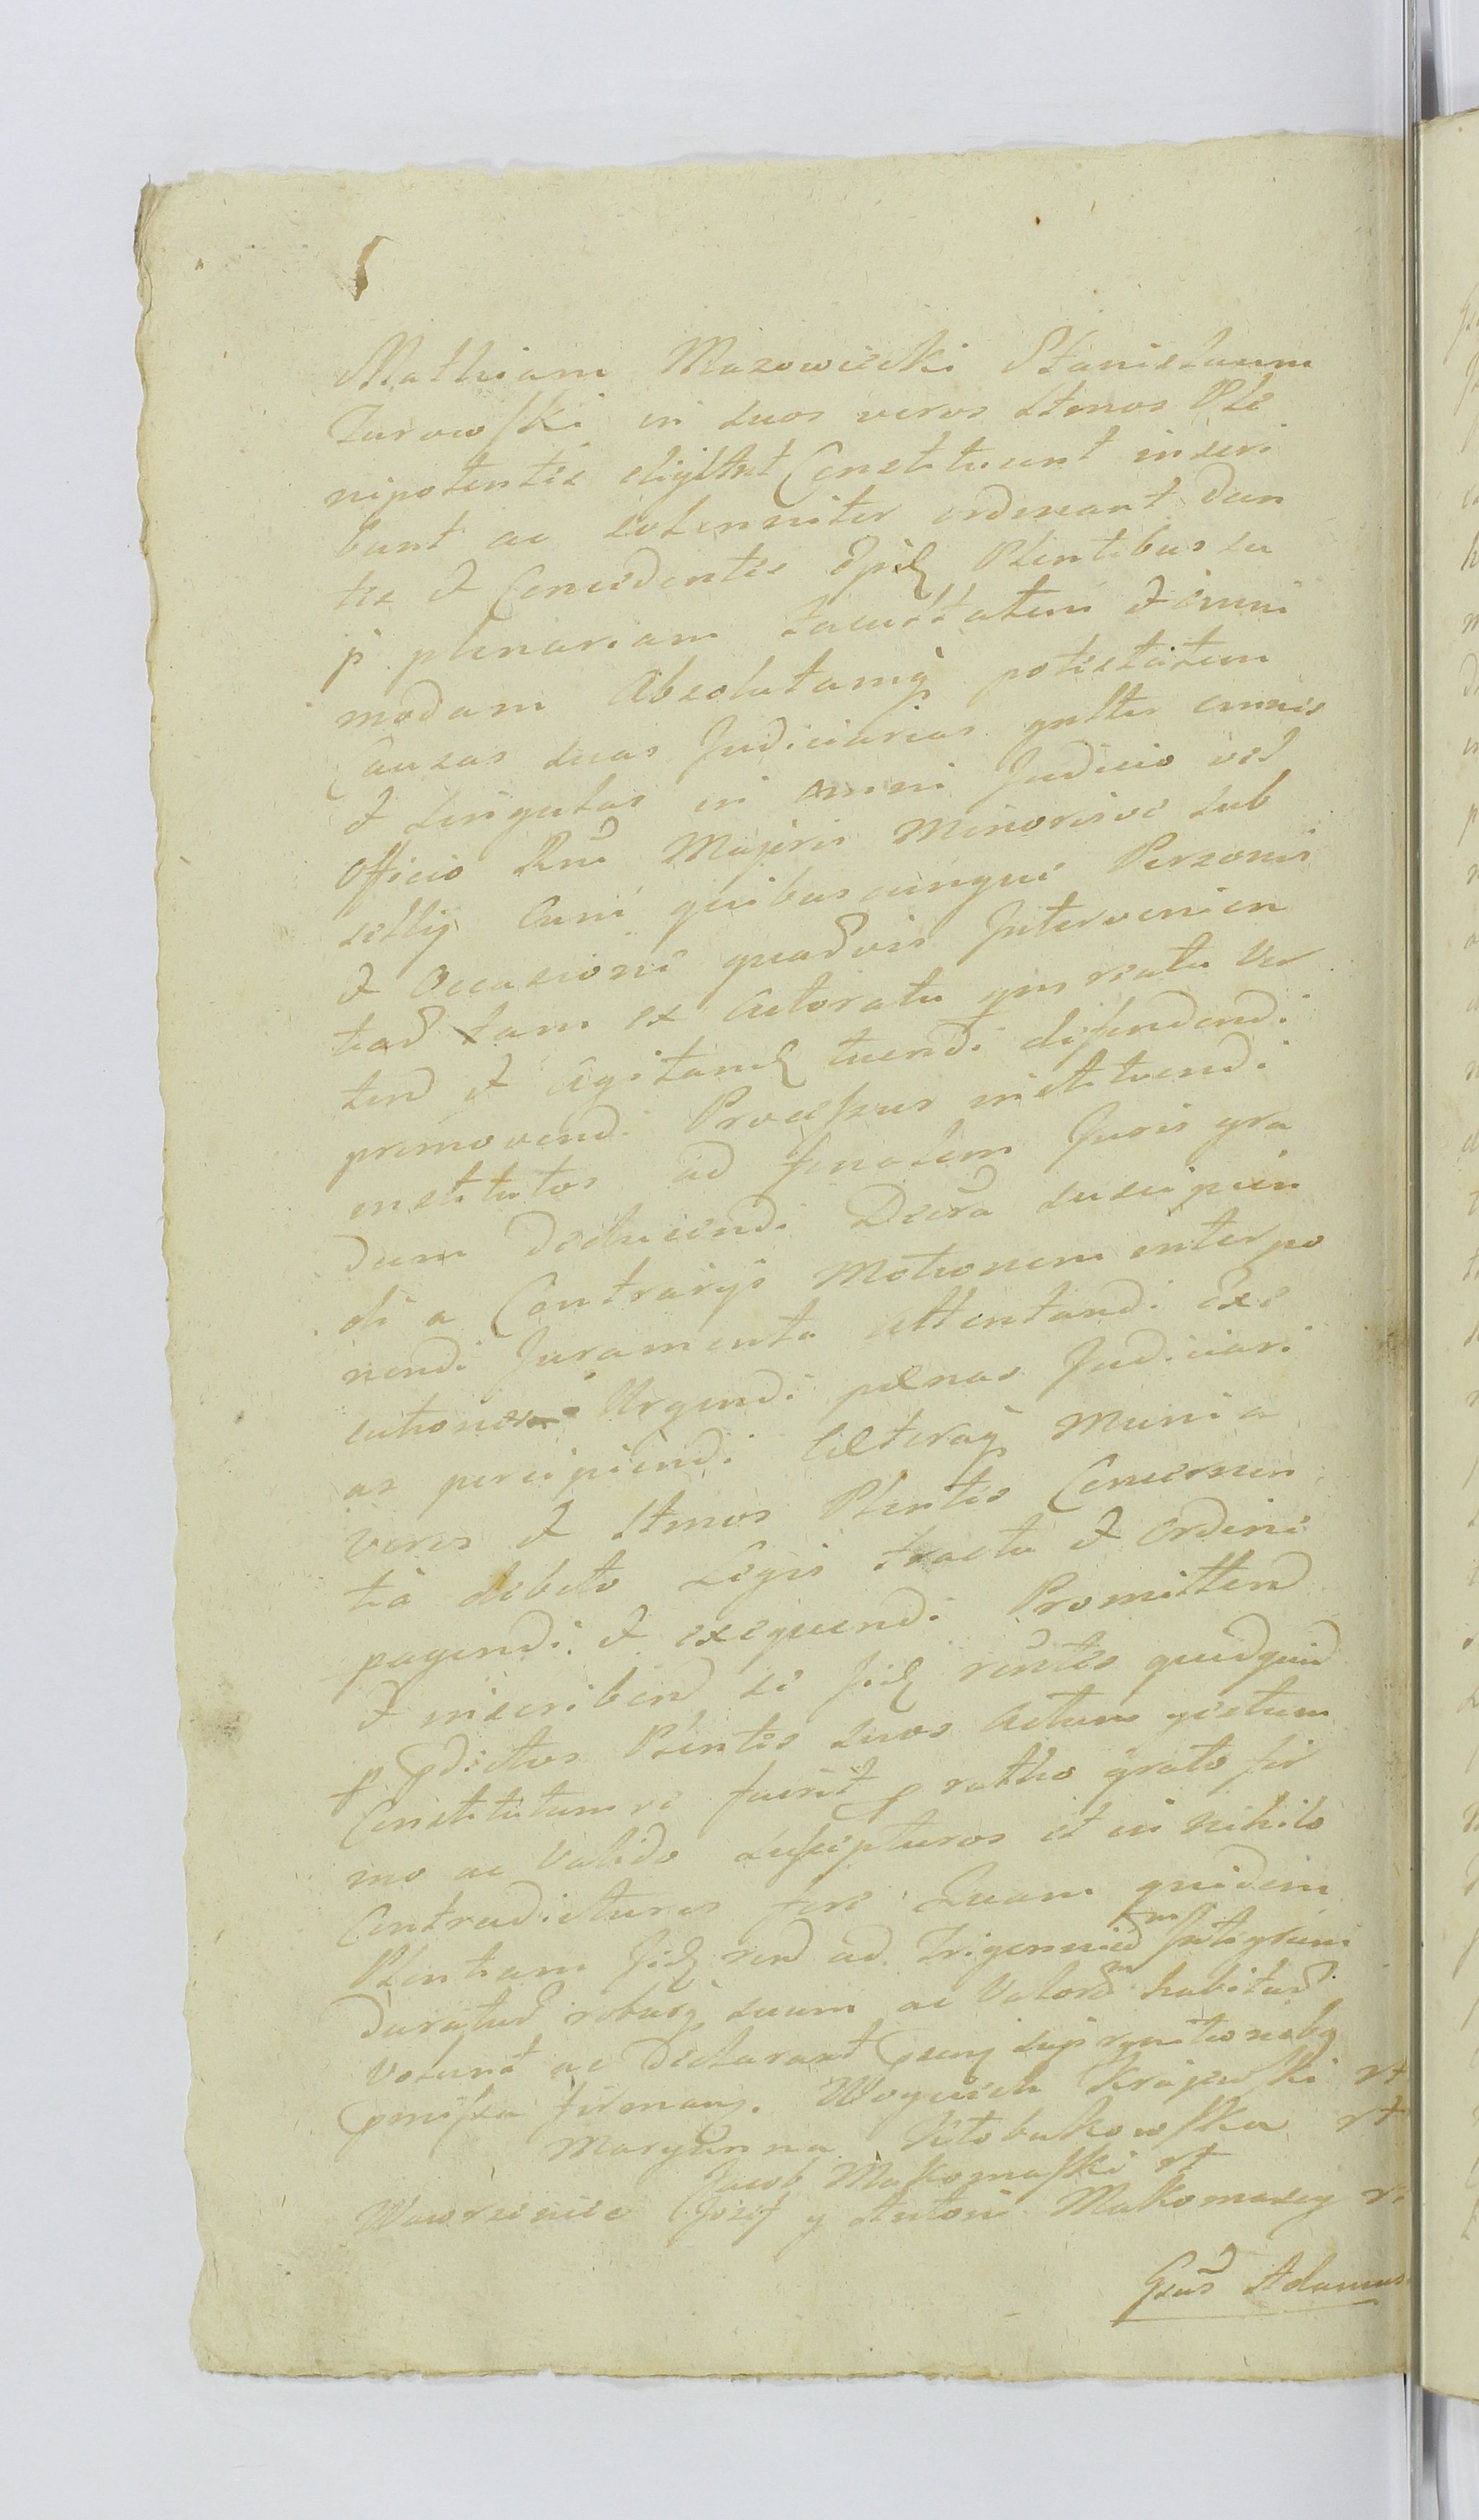 Mathiam Mazowiecki Stanislaum
Turowski in suos veros Ltmos Ple
nipotentes eligunt Constituunt inscri
bunt ac solenniter ordinant dan
tes et Concedentes Plentibus su
is plenariam facultatem et omni
modam Absolutamq potestatem
Causas suas Judiciarias gnlter omnes
et singulas in omni Judicio vel
Officio Rni Majoris Minorisve sub
sellij Cum quibuscunque Personis
et Occasione quadvis Intervenien
tad tam ex Actoratu qm reatu Ver
tend et Agitand tuendi defendendi
promovendi Processus instituendi
institutos ad finalem Juris gra
dum deducendi Decra suscipien
di a Contrarijs Motionem interpo
nendi Juramenta Attentandi Exe
cutiones Urgendi penas Judiciari
as percipiendi Caeteraq Munia
veros et Ltmos Plentes Concernen
tia debito Legis tractu et Ordine
pagendi et exequendi Promittend
et inscribend se rentes quidquid
p pdictos Plentes suos Actum gestum
Constitutumve fuerit p ratho grato fir
mo ac Valido suscepturos et in nihilo
Contradicturos fore Quam quidem
Plentiam ad Trigenniu Integrum
duratud roburq suum ac Valorem habitud
Volunt ac declarant subscriptionibq
pmissa firmanq. Woyciech Krajewski
Maryanna Kłobukowska
Jacob Makomaski
Wawrzeniec Jozef y Antoni Makomascy
Gsus Adamus